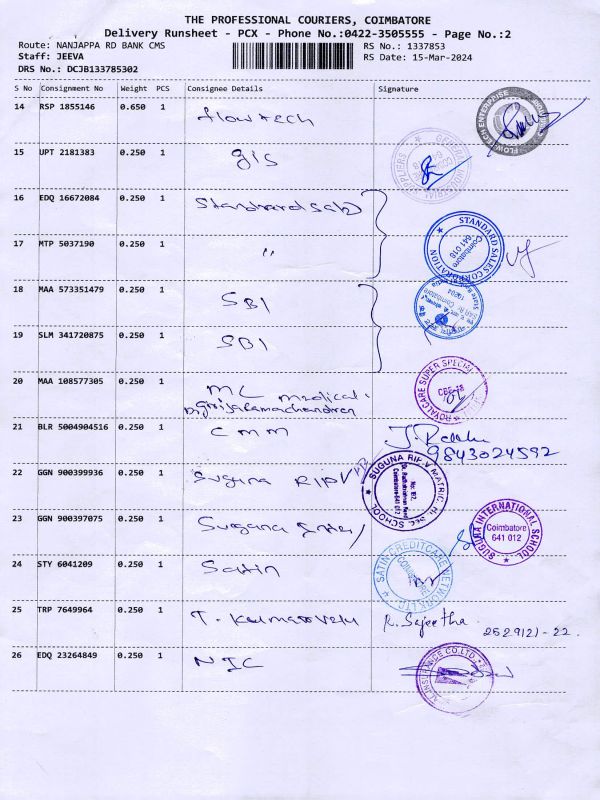 THE PROFESSIONAL COURIERS, COIMBATORE
Delivery Runsheet - PCX - Phone No.:0422-3505555 - Page No.:2
Route: NANJAPPA RD BANK CMS RS No.: 1337853
Staff: JEEVA RS Date: 15-Mar-2024
DRS No.: DCJB133785302
S No Consignment No Weight PCS Consignee Details Signature
14 RSP 1855146 0.650 1 flowtech
FLOWTECH ENTERPRISE
15 UPT 2181383 0.250 1 GIS
SUPPLIERS
16 EDQ 16672084 0.250 1 Standard sales
17 MTP 5037190 0.250 1 "
STANDARD SALES CORPORATION
Coimbatore
641 018
18 MAA 573351479 0.250 1 SBI
19 SLM 341720875 0.250 1 SBI
20 MAA 108577305 0.250 1 MC medical.
ROYALCARE SUPER SPECIAL
CBE
21 BLR 5004904516 0.250 1 CMM
9843024592
22 GGN 900399936 0.250 1 Suguna RIPV
SUGUNA RIP V MATRIC. HR. SEC. SCHOOL
23 GGN 900397075 0.250 1 Suguna
SUGUNA INTERNATIONAL SCHOOL
Coimbatore
641 012
24 STY 6041209 0.250 1 Satin
SATIN CREDITCARE NETWORK LTD.
25 TRP 7649964 0.250 1 T. Kumaravelu R. Sajeetha.
26 EDQ 23264849 0.250 1 NIC
INSURANCE CO.LTD